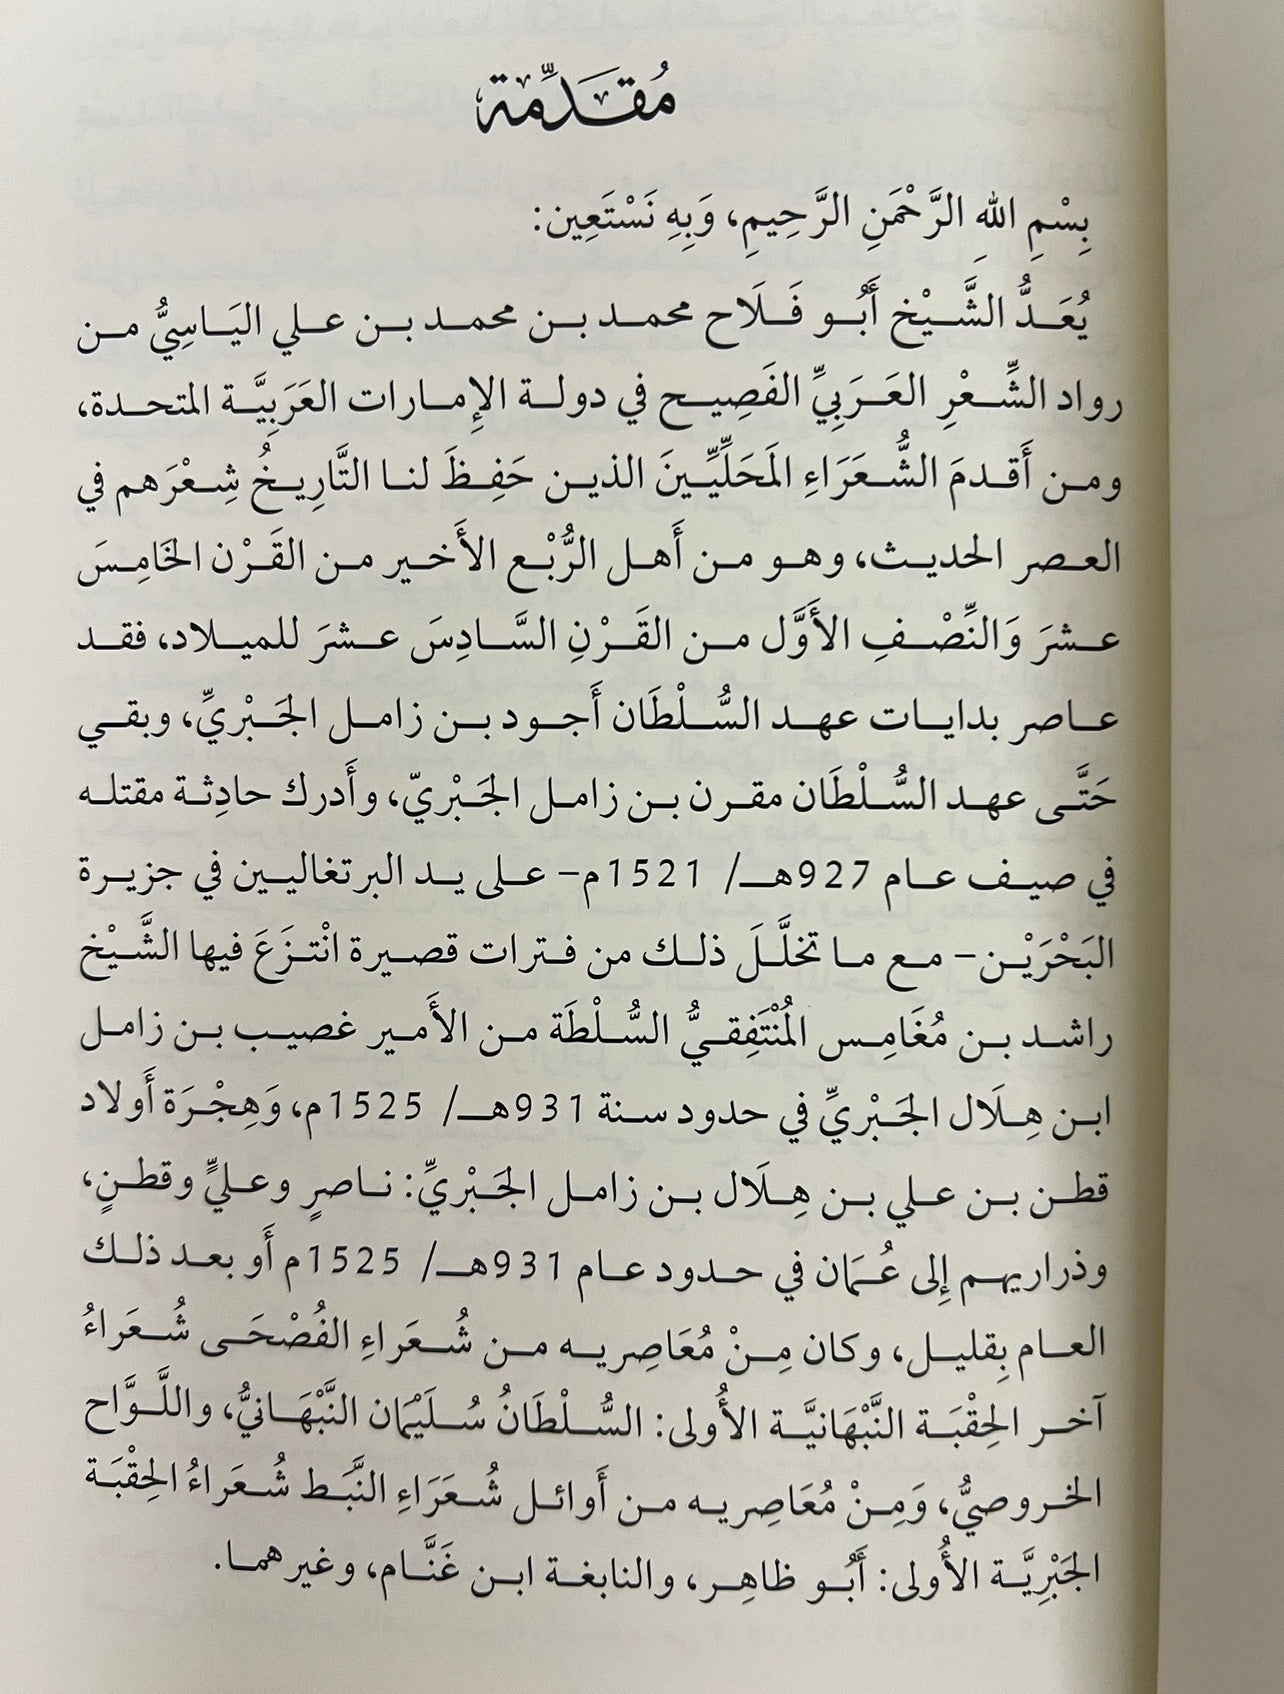 مُقَدِّمَة
بِسْمِ اللهِ الرَّحْمَنِ الرَّحِيمِ، وَبِهِ نَسْتَعِين:
يُعَدُّ الشَّيْخ أَبُو فَلَاح محمد بن محمد بن علي اليَاسِيُّ من
رواد الشِّعْرِ العَرَبِيِّ الفَصِيح في دولة الإِمارات العَرَبِيَّة المتحدة،
ومن أَقدمَ الشُّعَرَاءِ المَحَلِّيِّينَ الذين حَفِظَ لنا التَّارِيخُ شِعْرَهم في
العصر الحديث، وهو من أَهل الرُّبْع الأَخير من القَرْن الخَامِسَ
عشرَ وَالنِّصْفِ الأَوَّل من القَرْنِ السَّادِسَ عشرَ للميلاد، فقد
عاصر بدايات عهد السُّلْطَان أَجود بن زامل الجَبْريِّ، وبقي
حَتَّى عهد السُّلْطَان مقرن بن زامل الجَبْريّ، وأَدرك حادِثة مقتله
في صيف عام 927هـ/ 1521م– على يد البرتغاليين في جزيرة
البَحْرَيْن– مع ما تخلَّلَ ذلك من فترات قصيرة انْتزَعَ فيها الشَّيْخ
راشد بن مُغَامِس المُنْتَفِقيُّ السُّلْطَة من الأَمير غصيب بن زامل
ابن هِلَال الجَبْريِّ في حدود سنة 931هـ/ 1525م، وَهِجْرَة أَولاد
قطن بن علي بن هِلَال بن زامل الجَبْريِّ: ناصرٍ وعليٍّ وقطنٍ،
وذراريهم إِلى عُمَان في حدود عام 931هـ/ 1525م أَو بعد ذلك
العام بِقليل، وكان مِنْ مُعَاصِريه من شُعَراءِ الفُصْحَى شُعَراءُ
آخر الحِقْبَة النَّبْهَانيَّة الأُولى: السُّلْطَانُ سُلَيْمَان النَّبْهَانيُّ، واللَّوَّاح
الخروصيُّ، وَمِنْ مُعَاصِريه من أَوائل شُعَرَاءِ النَّبَط شُعَراءُ الحِقْبَة
الجَبْرِيَّة الأُولى: أَبُو ظاهِر، والنابغة ابن غَنَّام، وغيرهما.